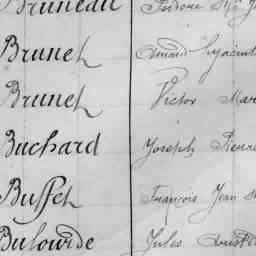 Bruneau Isidore
Brunet Amand hyacint
Brunet Victor Mar
Buchard Joseph Pierre
Buffet François Jean
Bulourde Jules